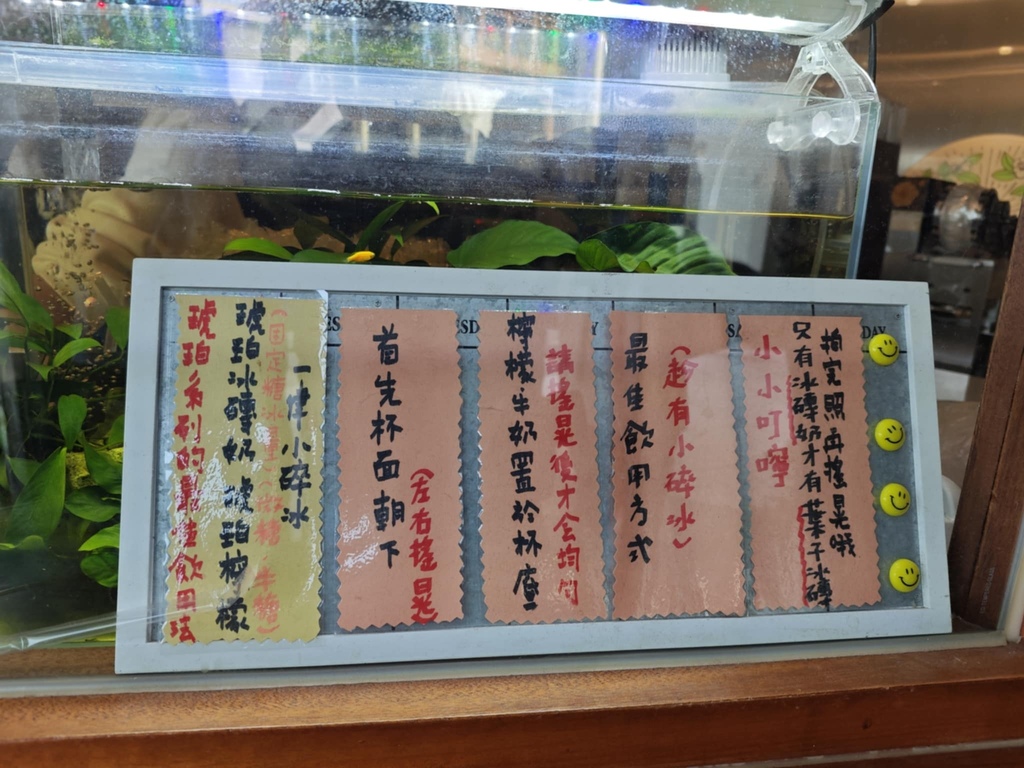 琥珀系列的最佳飲用法
琥珀冰磚奶 琥珀檸檬
(固定糖冰量(微糖 半糖)
一律小碎冰
首先杯面朝下
(左右搖晃)
檸檬牛奶置於杯底
請搖晃後才会均勻
最佳飲用方式
(趁有小碎冰)
小小叮嚀
又有冰磚奶才有葉子冰磚
拍完照再搖晃哦